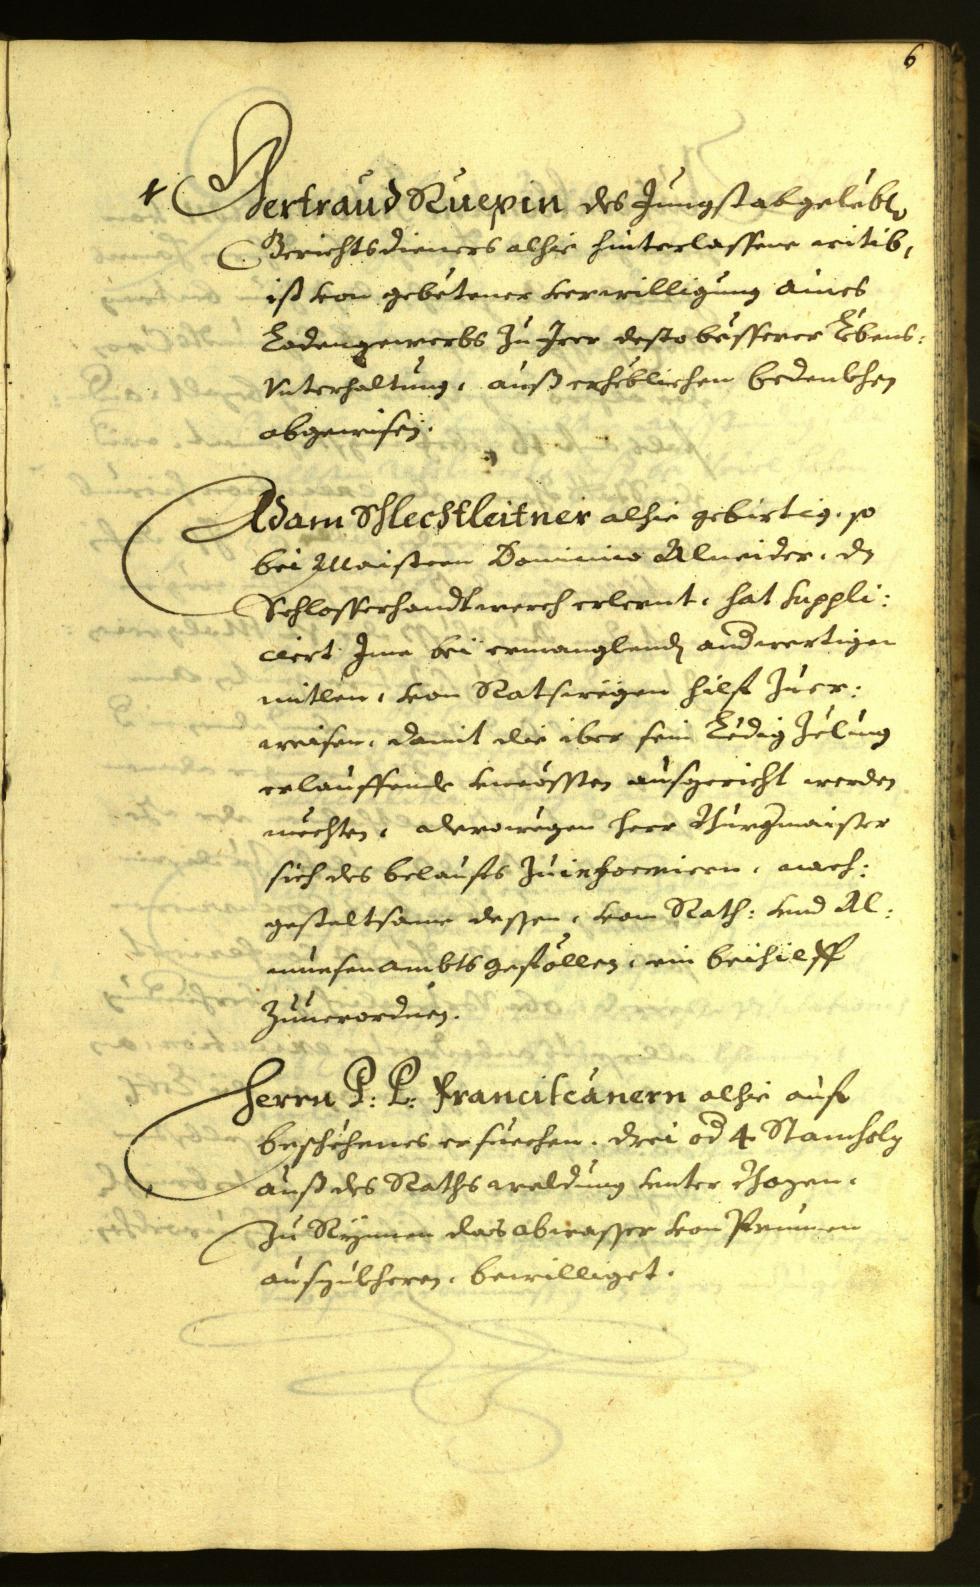 6
Gertraud Ruepin des Jungst abgelebten
Gerichtsdieners alhie hinterlassene witib,
ist von gebetener verwilligung aines
Ladengewerbs zu Irer desto bësserer Lëbens:
Vnterhaltung, auß erheblichen bedenkhen
abgewisen.
Adam Schlechtleitner alhie gebirtig, so
bei Maistern Dominico Alneider, dz
Schlosserhandtwerch erlernt, hat suppli:
ciert Ime bei ermanglend andwertigen
mitlen, von Ratswegen hilf zuer:
weisen, damit die iber sein Ledig Zelung
erlauffende uncossten ausgericht werden
mechten, derowegen herr Burgmaister
sich des belaufs zuinformiern, nach:
gestaltsame dessen, vom Rath: vnd Al:
muesenambts gefôllen, ein beihilff
Zuuerordnen.
Herrn P: P: Franciscanern alhie auf
beschehenes ersuechen, drei od 4 Stamholz
auß des Raths waldung vnter
zu Rynnen das abwasser vom Prunnen
auszukheren, bewilliget.